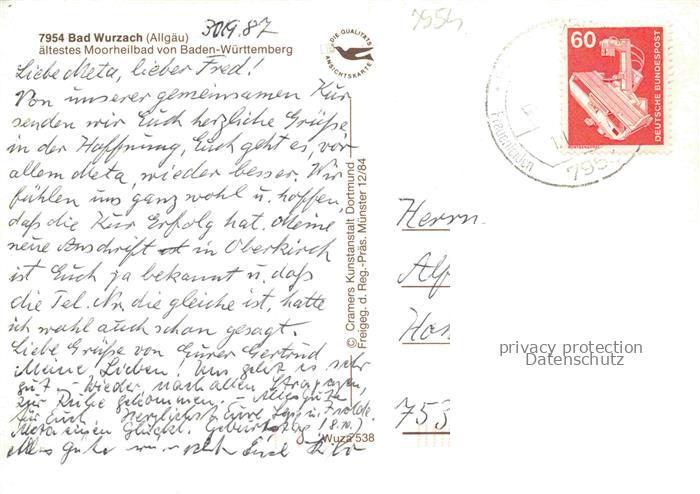 7954 Bad Wurzach (Allgäu)
ältestes Moorheilbad von Baden-Württemberg
30.9.87
Liebe Meta, lieber Fred!
Von unserer gemeinsamen Kur
senden wir Euch herzliche Grüße,
in der Hoffnung, Euch geht es, vor
allem Meta, wieder besser. Wir
fühlen uns ganz wohl u. hoffen
daß die Kur Erfolg hat. Meine
neue Anschrift in Oberkirch
ist Euch ja bekannt u. daß
die Tel. Nr. die gleiche ist, hatte
ich wohl auch schon gesagt.
Liebe Grüße von Eurer Gertrud
Meine Lieben! Uns geht es sehr
gut. – Wieder, nach allen Strapazen,
zur Ruhe gekommen. – Alles Gute
für Euch. Herzlichst Eure
Meta einen Glückl. Geburtstag! (8.10.)
Alles Gute Euch
DIE QUALITÄTS
ANSICHTSKARTE
© Cramers Kunstanstalt Dortmund
Freigeg. d. Reg.-Präs. Münster 12/84
Wuza 538
7954
60
DEUTSCHE BUNDESPOST
Frauenleiden
795
Herrn
Alf
753
privacy protection
Datenschutz